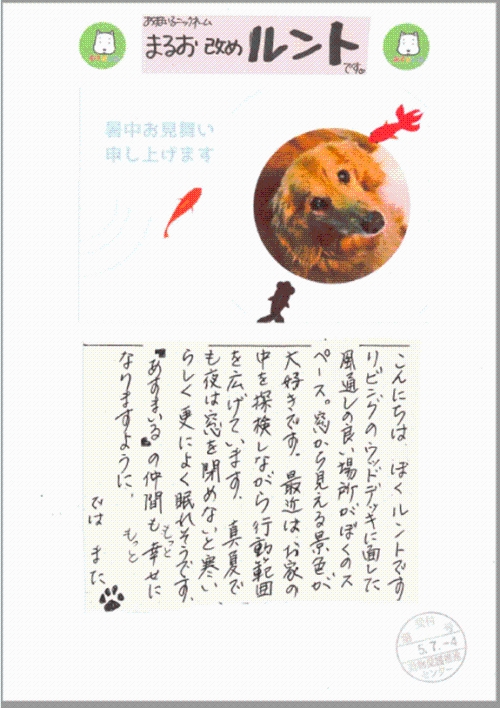 あすまいるニックネーム
まるお 改め ルント
です。
暑中お見舞い
申し上げます
こんにちは ぼくルントです
リビングのウッドデッキに面した
風通しの良い場所がぼくのス
ペース。窓から見える景色が
大好きです。最近は、お家の
中を探検しながら行動範囲
を広げています。真夏で
も夜は窓を閉めないと寒い
らしく更によく眠れそうです。
"あすまいる"の仲間も幸せに
なりますように。
もっと
もっと
では また
受付
5.7.-4
センター